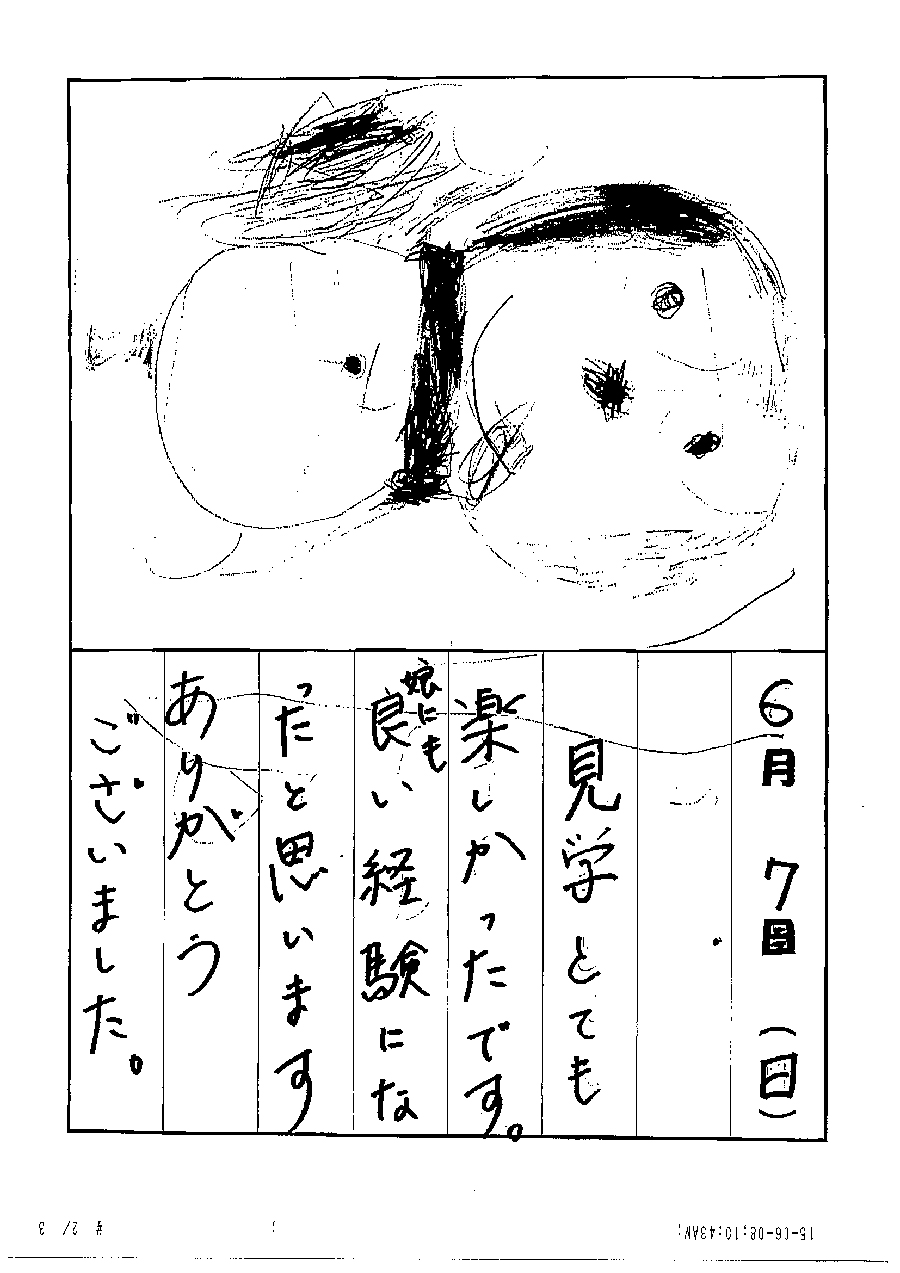 6月 7日 (日)
見学とても
楽しかったです。
娘にも
良い経験にな
ったと思います
ありがとう
ございました。
15-06-08;10:43AM;
# 2/ 3